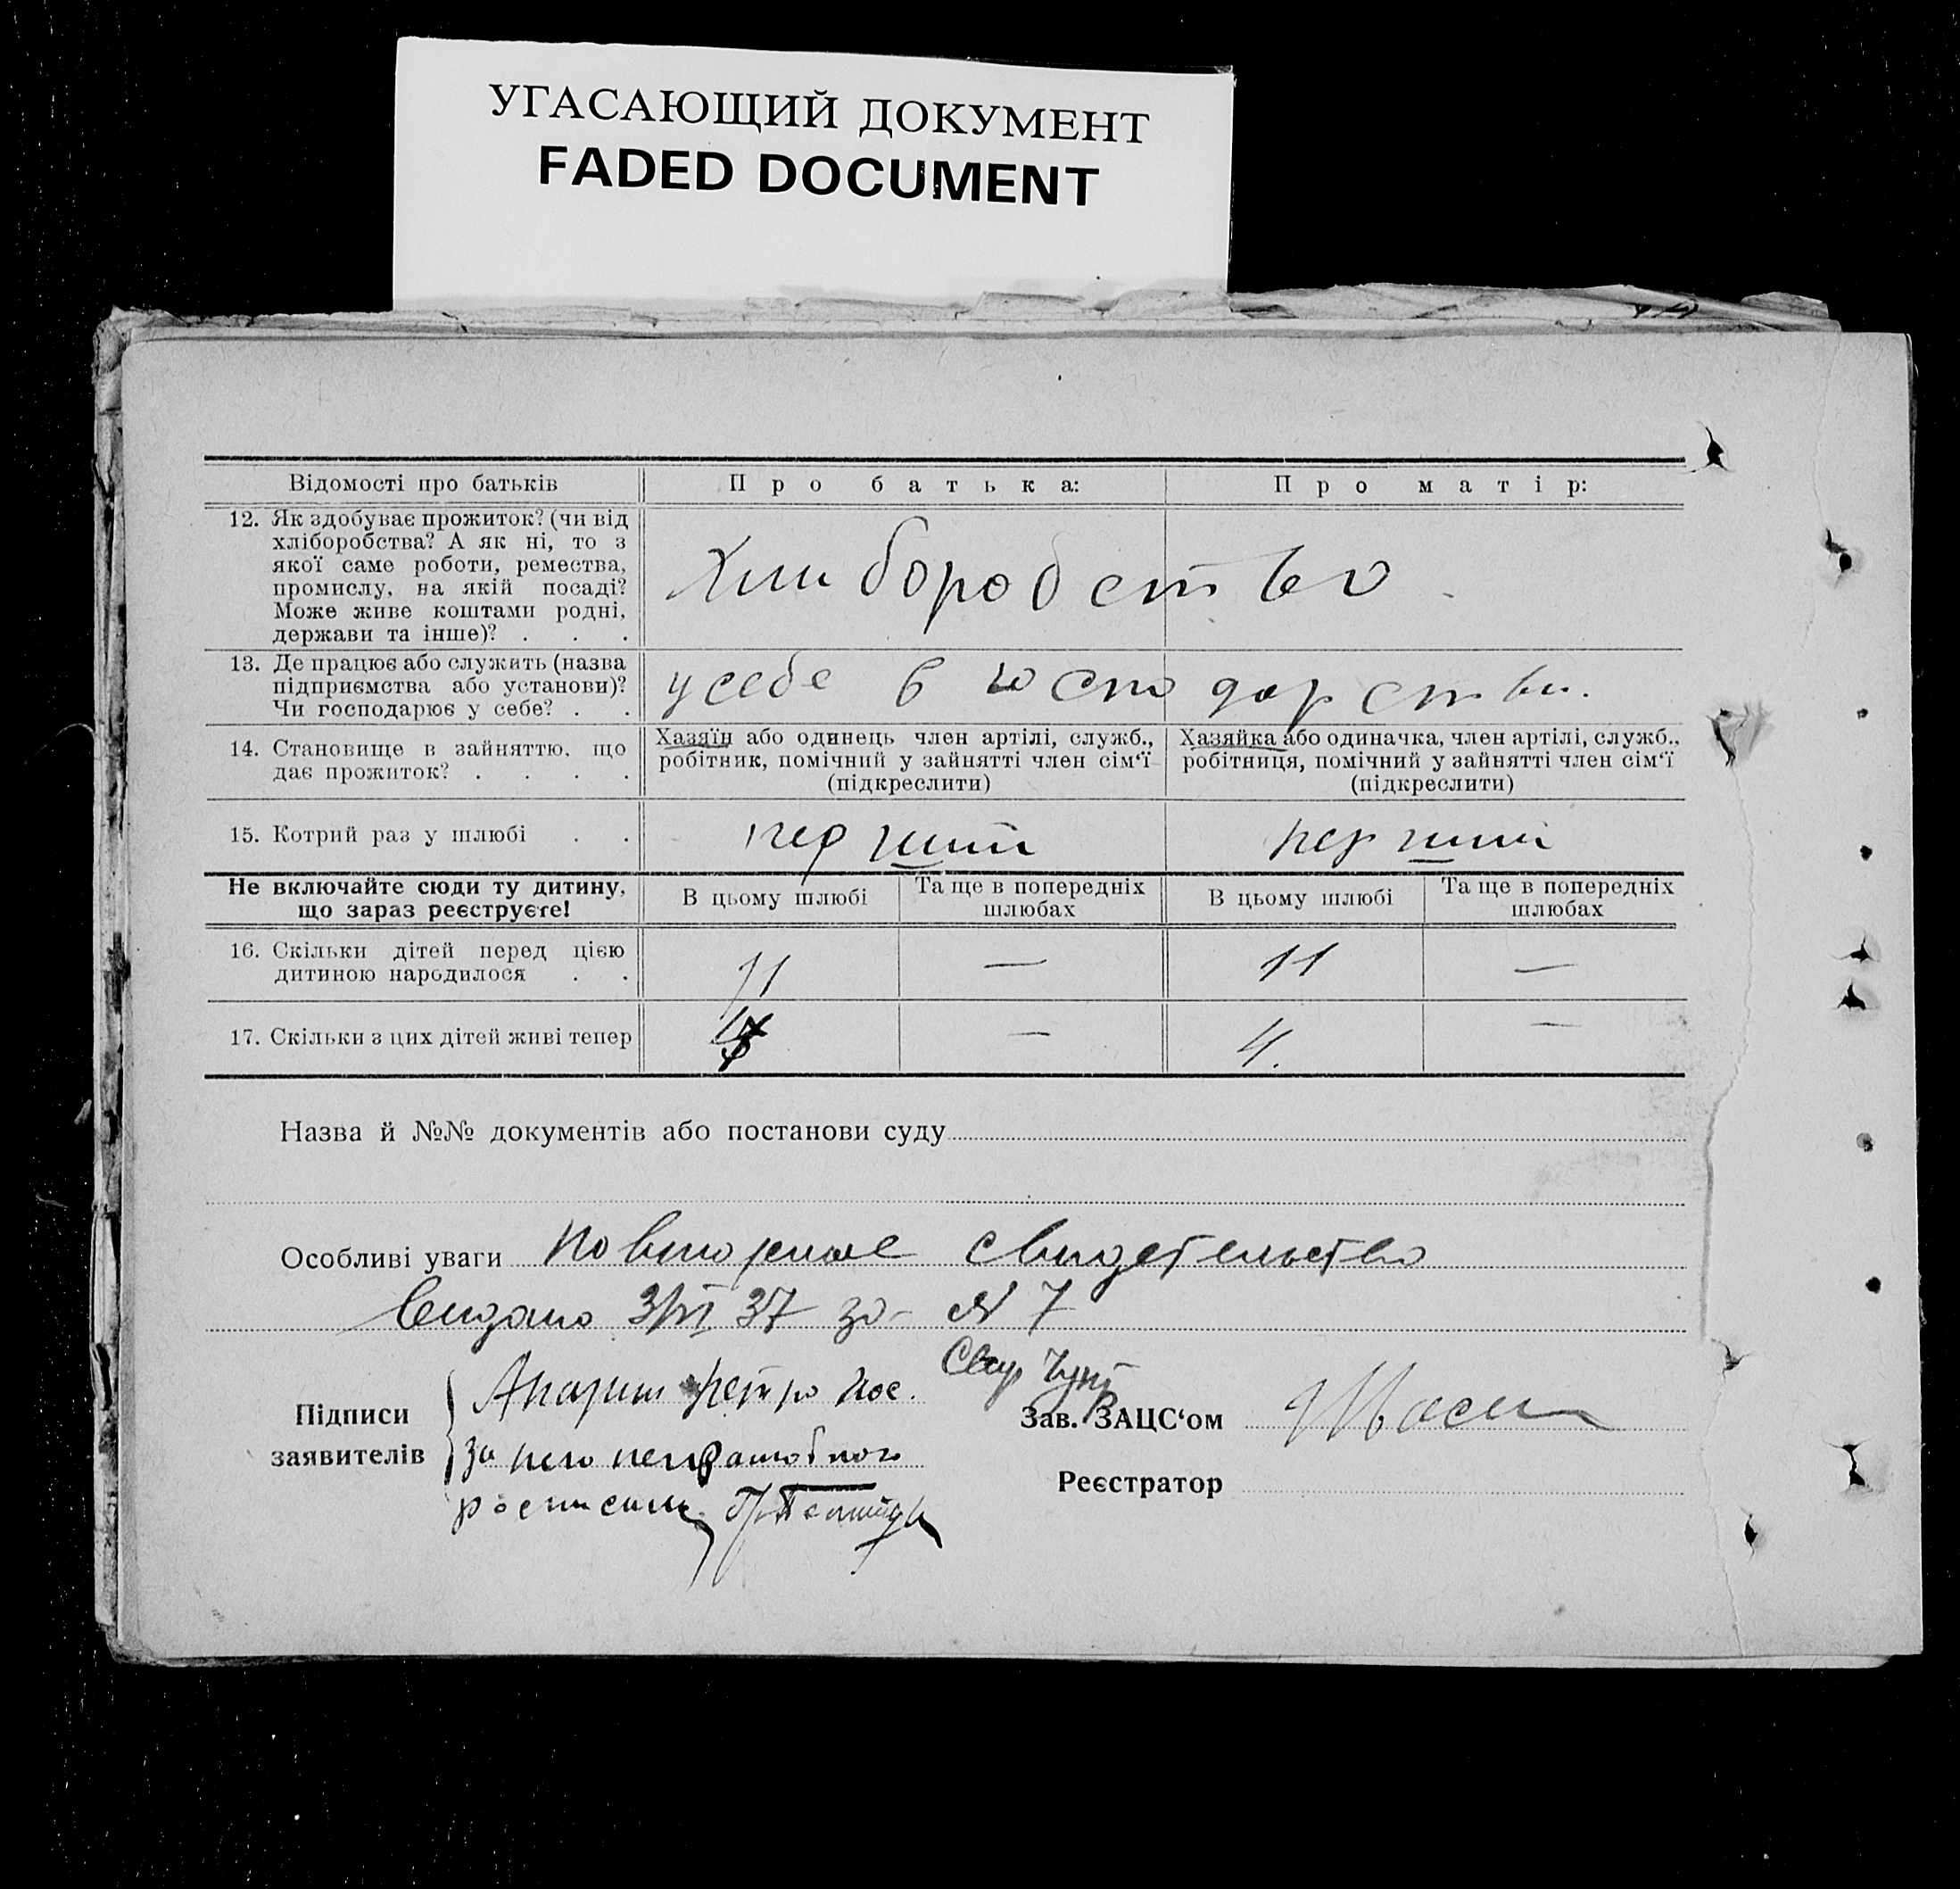 УГАСАЮЩИЙ ДОКУМЕНТ
FADED DOCUMENT
Відомості про батьків
Про батька:
Про матір:
12. Як здобуває прожиток? (чи від
хліборобства? А як ні, то з
якої саме роботи, ремества,
промислу, на якій посаді?
Може живе коштами родні,
держави та інше)? . . .
Хлиборобство
13. Де працює або служить (назва
підприємства або установи)?
Чи господарює у себе? . .
у себе в господарстви.
14. Становище в зайняттю, що
дає прожиток? . . . .
Хазяїн або одинець член артілі, служб.,
робітник, помічний у зайнятті член сім‘ї
(підкреслити)
Хазяйка або одиначка, член артілі, служб.,
робітниця, помічний у зайнятті член сім‘ї
(підкреслити)
15. Котрий раз у шлюбі . .
перший
перший
Не включайте сюди ту дитину,
що зараз реєструєте!
В цьому шлюбі
Та ще в попередніх
шлюбах
В цьому шлюбі
Та ще в попередніх
шлюбах
16. Скільки дітей перед цією
дитиною народилося . .
11
—
11
—
17. Скільки з цих дітей живі тепер
—
4.
—
Назва й №№ документів або постанови суду
Особливі уваги Повторное свидетельство
выдано 3/VI 37 за N 7
Підписи
заявителів
петро
за него неграмотного
росписался
Зав. ЗАЦС‘ом
Реєстратор